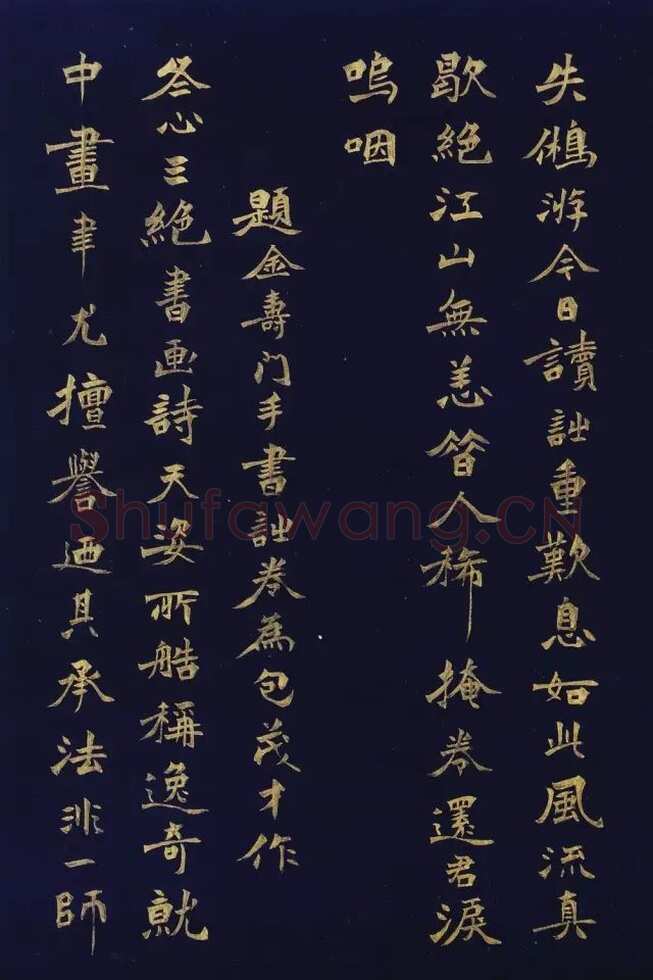 失游今日讀詩重歎息如此風流真
歇絕江山無恙昔人稀掩卷還君淚
嗚咽
題金壽门手書詩卷為包茂才作
冬心三絕書画詩天姿所艁稱逸奇就
中畫聿尤擅譽迺其承法非一師
Shufawang.CN